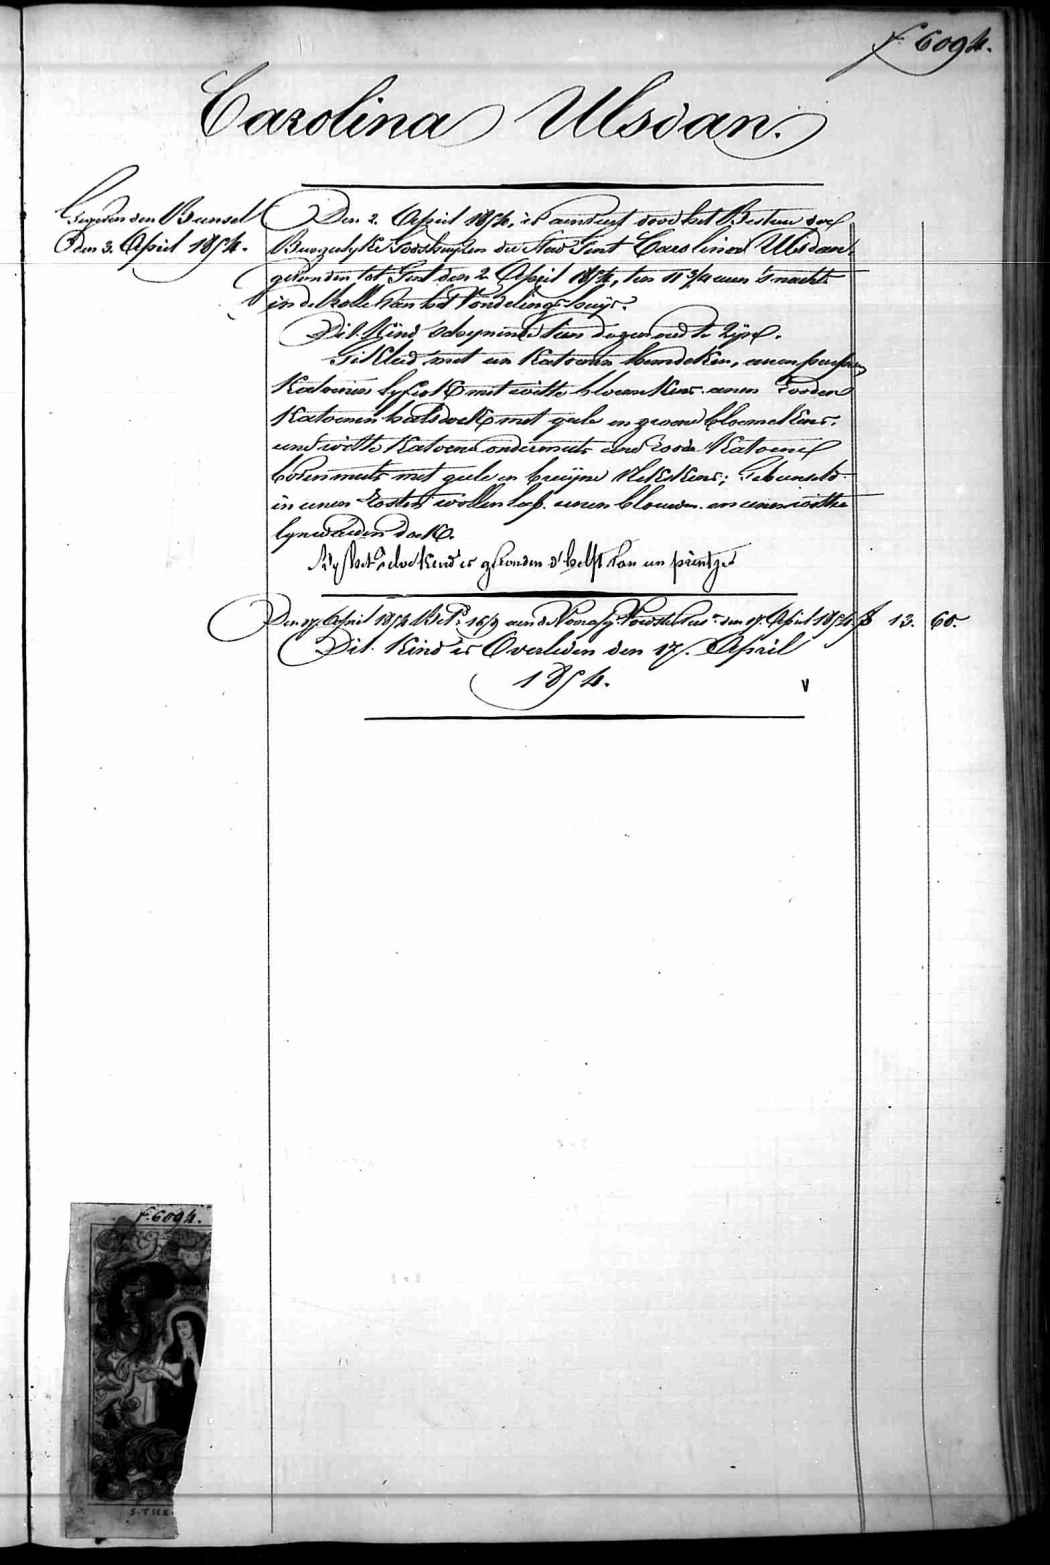 f° 6094.
Carolina Ulsdan.
Gegeven den Bunsel
Den 3. April 1854.
Den 2. April 1854, is aenveird door het Bestuer der
Burgerlyke Godshuyzen der Stad Gent Carolina Ulsdan
gevonden tot Gent den 2 April 1854, ten 11 3/4 uren 's nachts
in de rolle van het Vondelinge huys.
Dit Kind schynende tien dagen oud te zyn.
Gekleed met een katoenen hemdeken, eenen
Katoenen lyfrok met witte bloemkens eenen rooden
Katoenen halsdoek met geele en groene bloemekens,
eene witte katoene ondermuts eene roode katoene
bovenmuts met geele en bruyne vlekskens; Gebunseld
in eenen wollen lap. eenen blauwen en eenen witten
lynwaeden doek.
By het zelve kind is gevonden d'helft van een printje
Den 17. April 1854 Bet. 16/3 aen de den 17. April 1854 f 13. 60.
Dit Kind is Overleden den 17. April
1854.
v
f° 6094.
S. THE